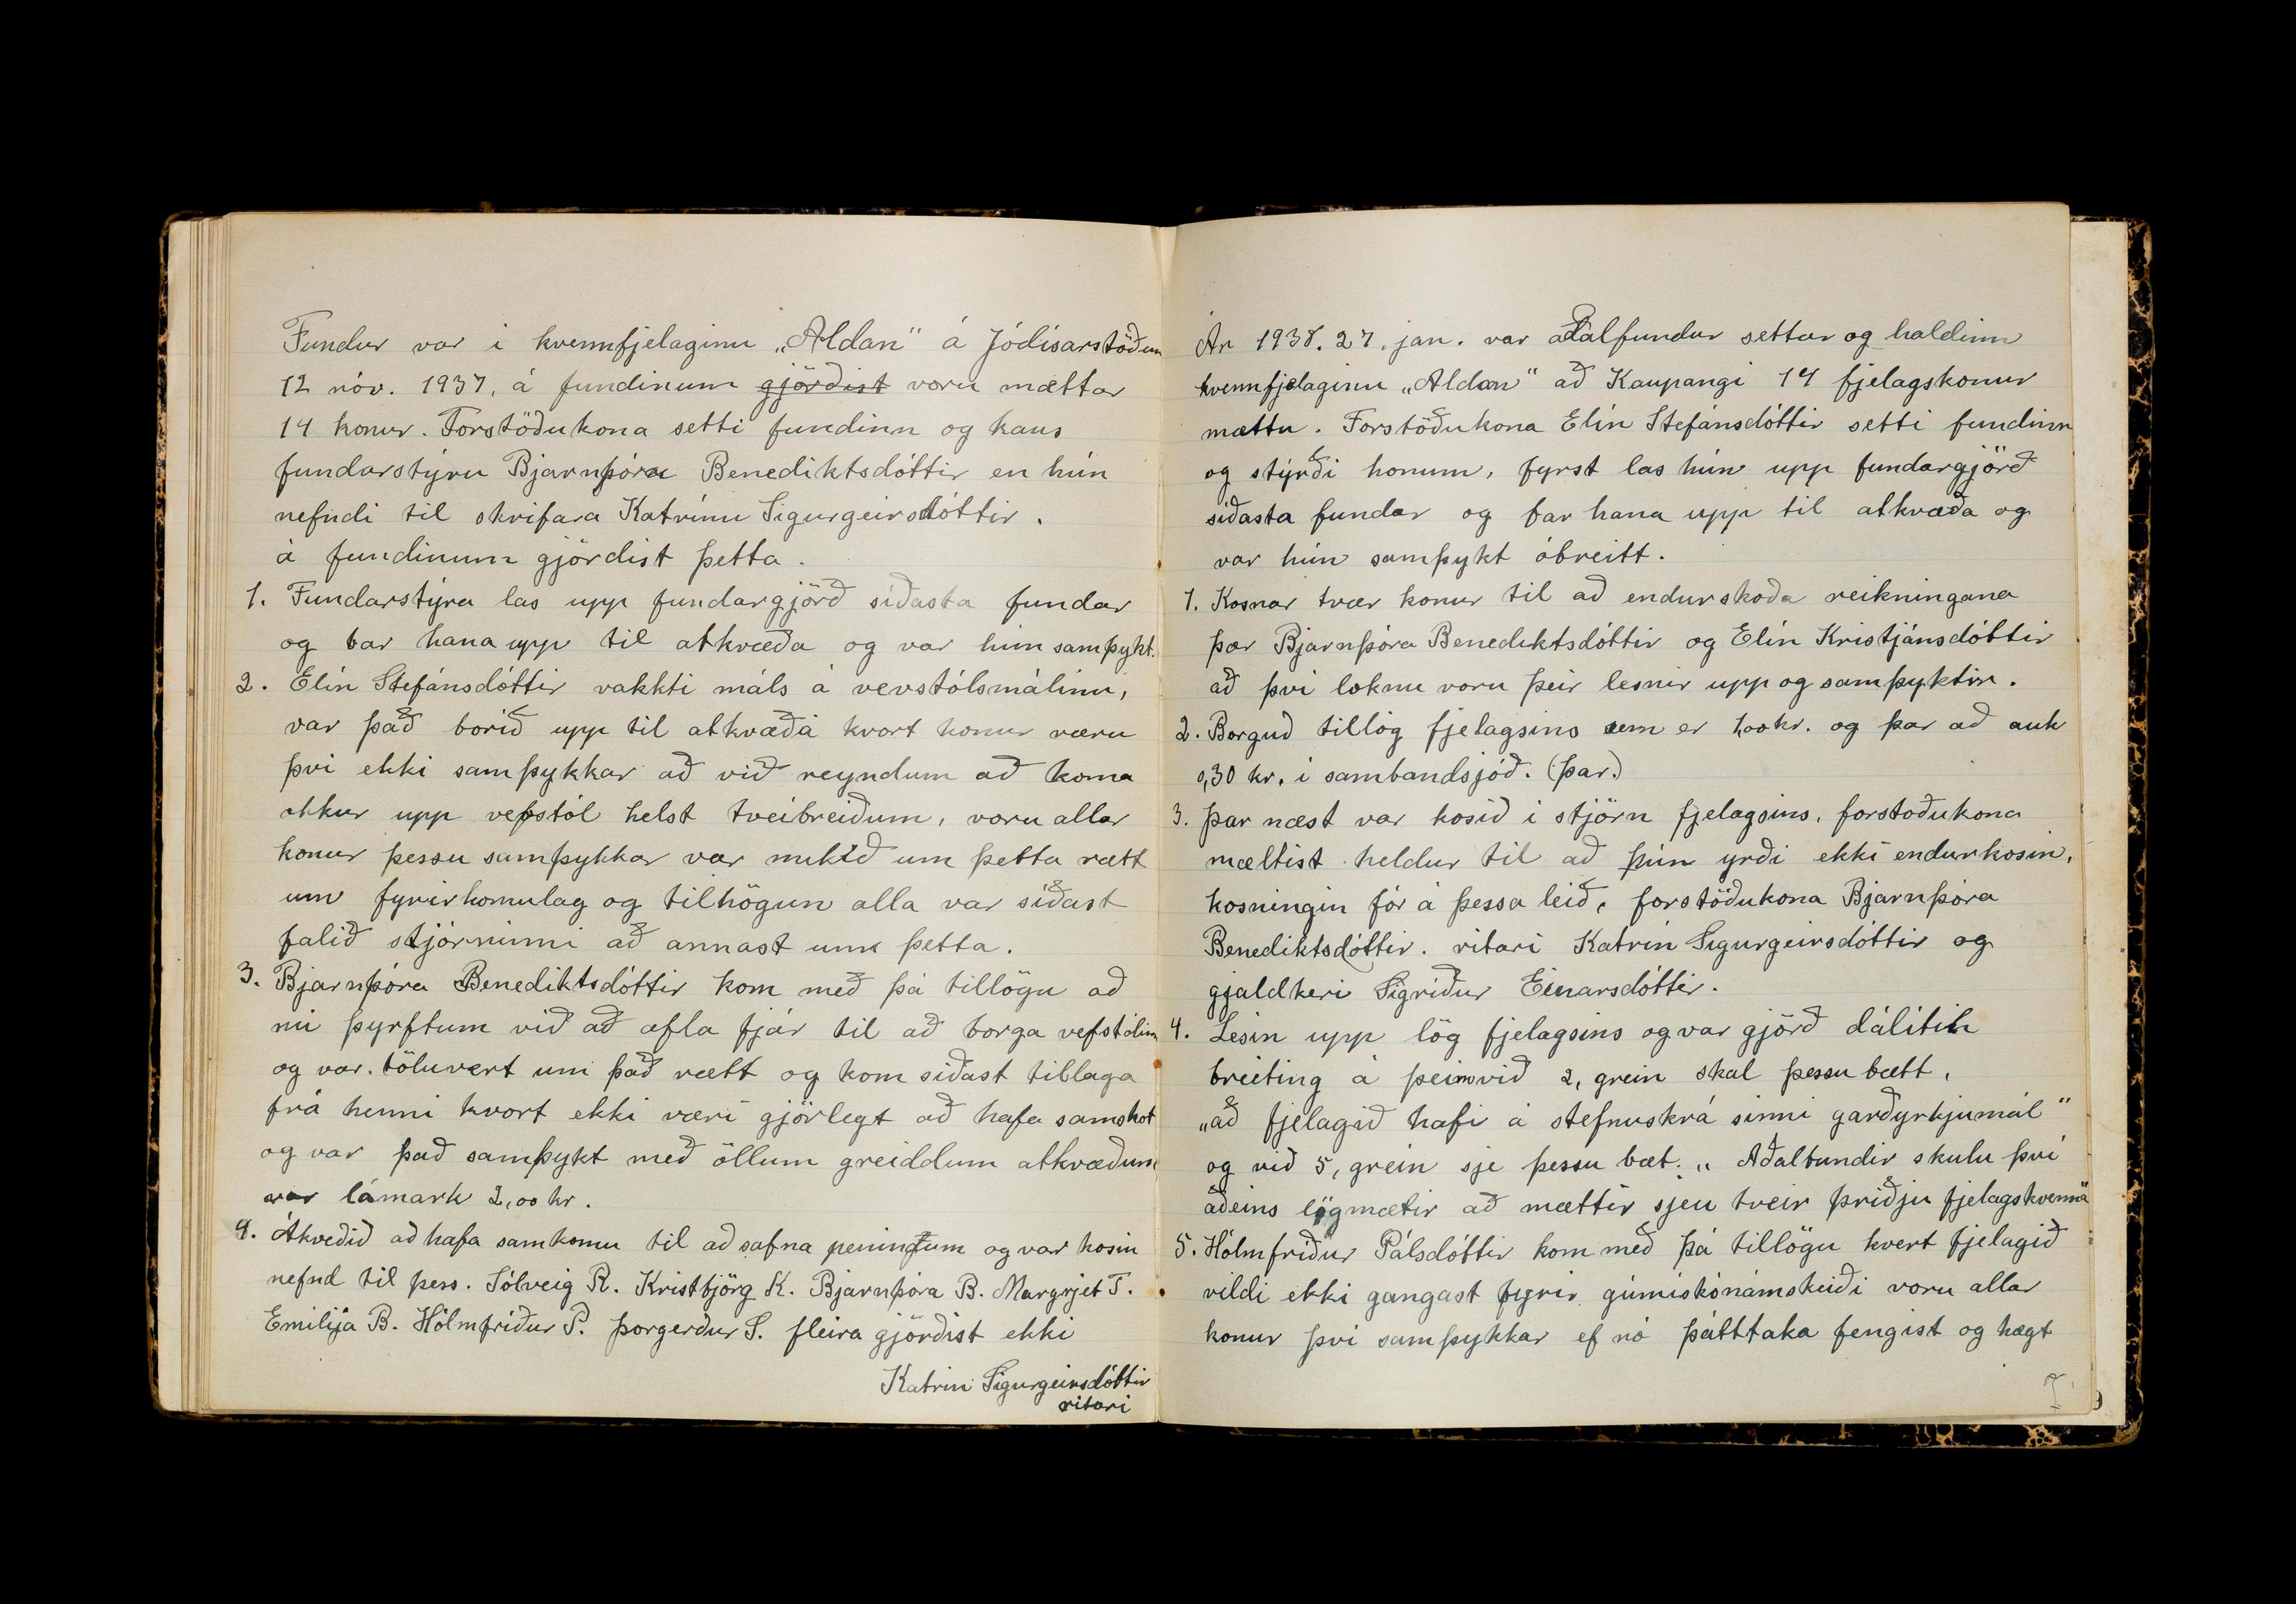 Fundur var i kvennfjelaginu „Aldan" á Jódísarstöðum
12 nóv. 1937, á fundinum gjörðist voru mættar
14 konur. Forstöðukona setti fundinn og kaus
fundarstýru Bjarnþóra Benediktsdóttir en hún
nefndi til skrifara Katrínu Sigurgeirsdóttir.
á fundinum gjördist þetta.
1. Fundarstýra las upp fundargjörð síðasta fundar
og bar hana upp til atkvæða og var hún samþykt.
2. Elín Stefánsdóttir vakkti máls á vevstólsmálinu,
var það borið upp til atkvæða kvort konur væru
því ekki samþykkar að við reyndum að koma
okkur upp vefstól helst tvíbreiðum, voru allar
konur þessu samþykkar var mikið um þetta rætt
um fyrirkomulag og tilhögun alla var síðast
falið stjórninni að annast um þetta.
3. Bjarnþóra Benediktsdóttir kom með þá tillögu að
nú þyrftum við að afla fjár til að borga vefstólinn
og var töluvert um það rætt og kom síðast tillaga
frá henni kvort ekki væri gjörlegt að hafa samskot
og var það samþykt með öllum greiddum atkvæðum
var lámark 2,00 kr.
4. Ákveðið að hafa samkomu til að safna peningum og var kosin
nefnd til þess. Sólveig R. Kristbjörg K. Bjarnþóra B. Margrjet T.
Emilija B. Hólmfríður P. Þorgerður S. fleira gjörðist ekki
Katrín Sigurgeirsdóttir
ritari
Ár 1938. 27. jan. var aðalfundur settur og haldinn
kvennfjelaginu „Aldan" að Kaupangi 14 fjelagskonur
mættu. Forstöðukona Elín Stefánsdóttir setti fundinn
og stýrði honum, fyrst las hún upp fundargjörð
síðasta fundar og bar hana upp til atkvæða og
var hún samþykt óbreitt.
1. Kosnar tvær konur til að endurskoða reikningana
þær Bjarnþóra Benediktsdóttir og Elín Kristjánsdóttir
að því loknu voru þeir lesnir upp og samþyktir.
2. Borguð tillög fjelagsins sem er 1,00 kr. og þar að auk
0,30 kr. í sambandsjóð. (þar.)
3. Þar næst var kosið í stjórn fjelagsins, forstoðukona
mæltist heldur til að hún yrði ekki endurkosin,
kosningin fór á þessa leið, forstöðukona Bjarnþóra
Benediktsdóttir. ritari Katrín Sigurgeirsdóttir og
gjaldkeri Sigríður Einarsdóttir.
4. Lesin upp lög fjelagsins og var gjörð dálítil
breiting á þeim við 2, grein skal þessu bætt,
„að fjelagið hafi á stefnuskrá sinni garðyrkjumál"
og við 5, grein sje þessu bæt. „ Aðalfundir skulu því
aðeins lögmætir að mættir sjeu tveir þriðju fjelagskvenna"
5. Hólmfríður Pálsdóttir kom með þá tillögu kvert fjelagið
vildi ekki gangast fyrir gúmískónámskeiði voru allar
konur því samþykkar ef nó þátttaka fengist og hægt